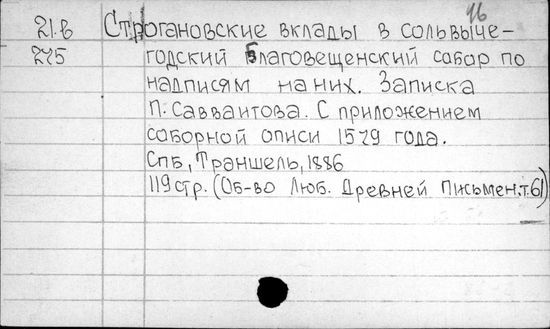 16
21.в Строгановские вклады в сольвыче-
275 годский Благовещенский собор по
надписям на них. Записка
П. Савваитова. С приложением
соборной описи 1579 года.
Спб, Траншель, 1886
119 стр. (Об-во Люб. Древней Письмен. т. 61)